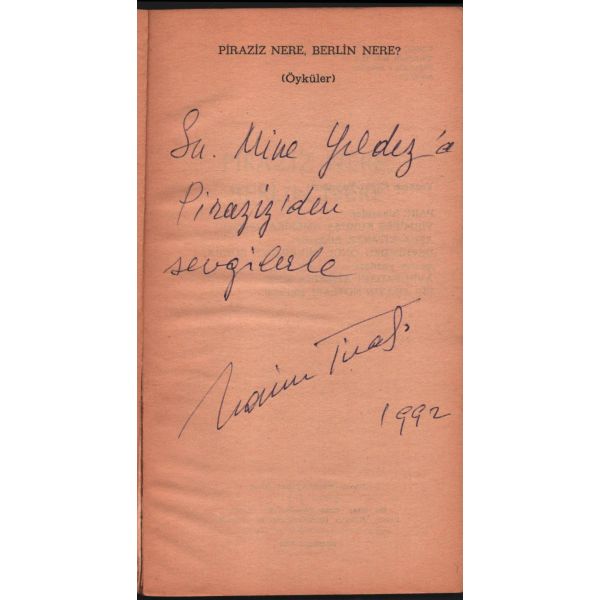 PİRAZİZ NERE, BERLİN NERE?
(Öyküler)
Sn. Mine Yıldız'a
Piraziz'den
sevgilerle
Naim Tirali
1992